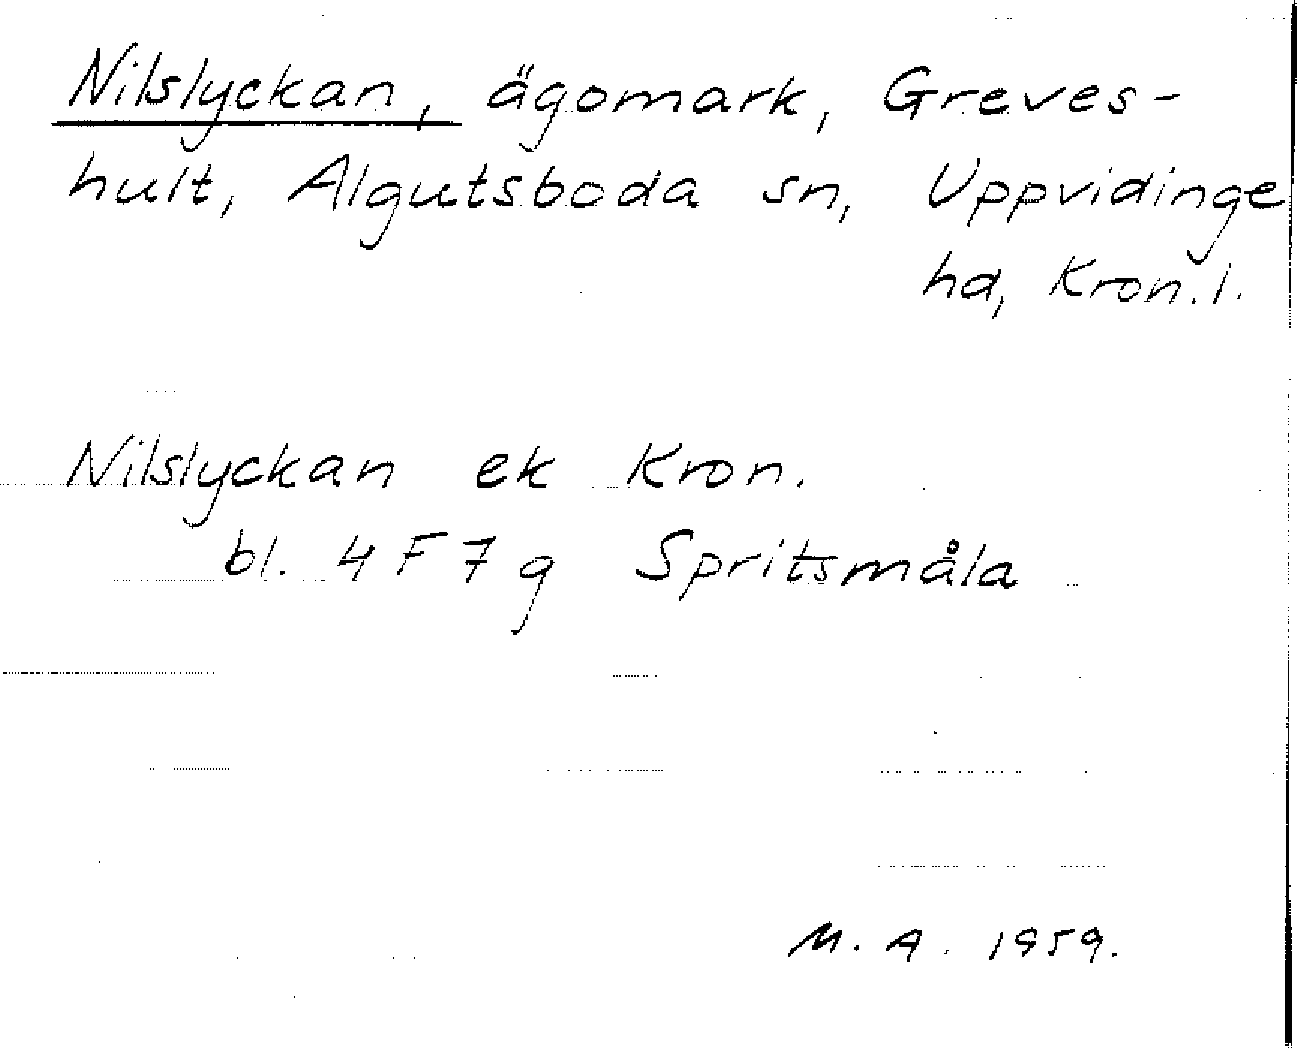 Nilslyckan, ägomark, Greves-
hult, Algutsboda sn, Uppvidinge
hd, Kron. l.
Nilslyckan ek Kron.
bl. 4 F 7 g Spritsmåla
M. A. 1959.